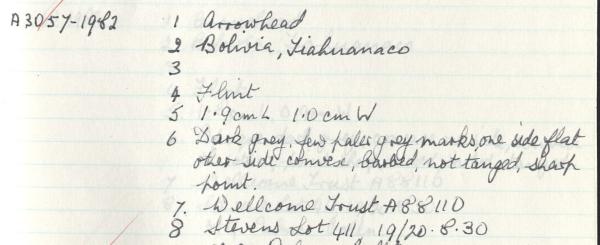 A3057-1982 1 Arrowhead
2 Bolivia, Tiahuanaco
3
4 Flint
5 1.9cm L 1.0cm W
6 Dark grey, few paler grey marks, one side flat
other side convex, barbed, not tanged, sharp
point.
7. Wellcome Trust A88110
8 Stevens Lot 411 19/20.8.30